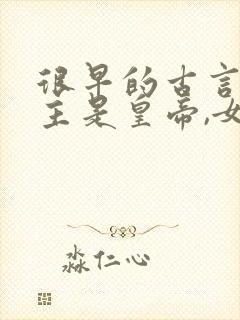 很早的古言
主是皇帝,女
淼仁心